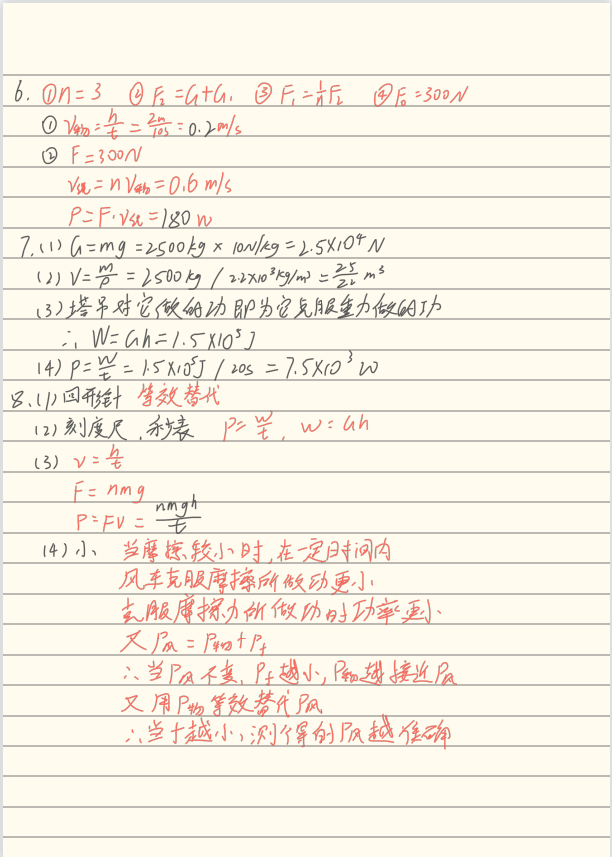 6. ①n=3 ②F₂=G+G₁ ③F₁=1/n F₂ ④F₀=300N
① V物=h/t=2m/10s=0.2m/s
② F=300N
V绳=nV物=0.6m/s
P=F·V绳=180w
7.(1) G=mg=2500kg×10N/kg=2.5×10⁴N
(2) V=m/ρ=2500kg/2.2×10³kg/m³=25/22 m³
(3)塔吊对它做的功即为它克服重力做的功
∴ W=Gh=1.5×10⁵J
(4) P=W/t=1.5×10⁵J/20s=7.5×10³W
8.(1)回形针 等效替代
(2)刻度尺、秒表 P=W/t, W=Gh
(3) v=h/t
F=nmg
P=FV=nmgh/t
(4)小、当摩擦较小时,在一定时间内
风车克服摩擦所做功更小
克服摩擦力所做功的功率更小
又P风=P物+Pf
∴当P风不变,Pf越小,P物越接近P风
又用P物等效替代P风
∴当f越小,测得的P风越准确